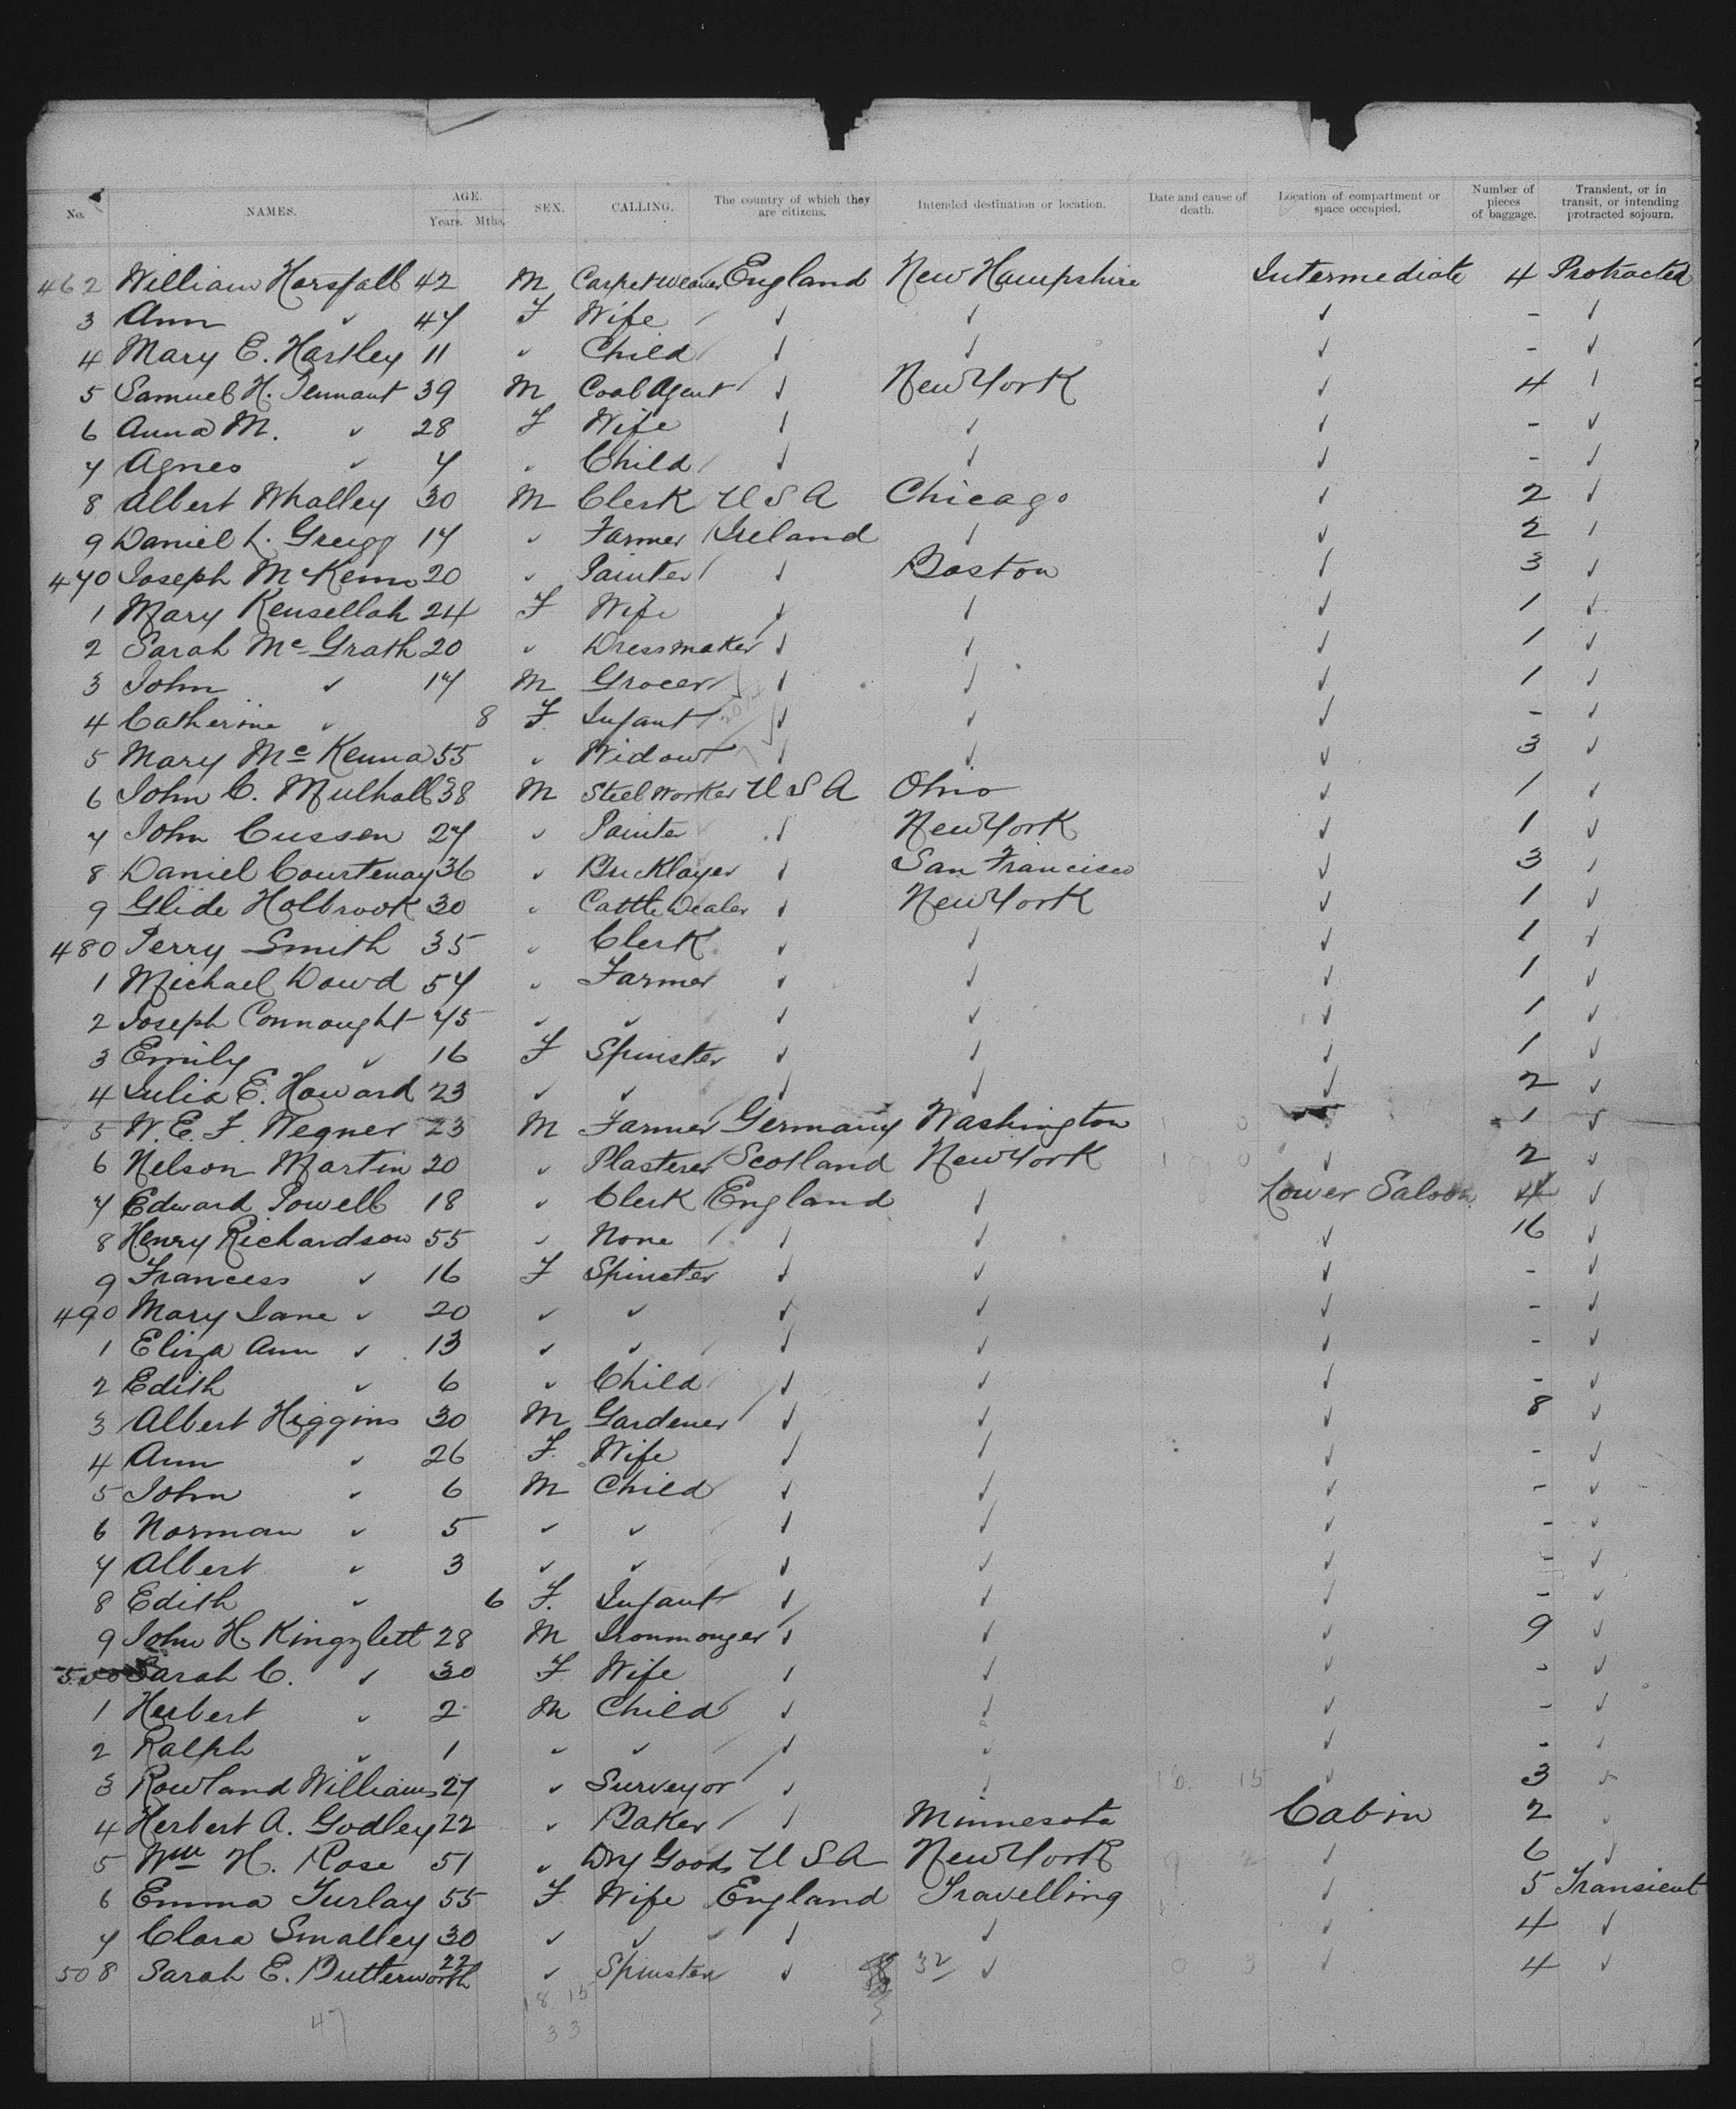 No. NAMES. AGE. Years. Mths. SEX. CALLING. The country of which they are citizens. Intended destination or location. Date and cause of death. Location of compartment or space occupied. Number of pieces of baggage. Transient, or in transit, or intending protracted sojourn.
462 William Horsfall 42 M Carpet Weaver England New Hampshire Intermediate 4 Protracted
3 Ann ✓ 47 F Wife ✓ ✓ ✓ - ✓
4 Mary E. Hartley 11 ✓ Child ✓ ✓ ✓ - ✓
5 Samuel H. Tennant 39 M Coal Agent ✓ New York ✓ 4 ✓
6 Anna M. ✓ 28 F Wife ✓ ✓ ✓ - ✓
7 Agnes ✓ 7 ✓ Child ✓ ✓ ✓ - ✓
8 Albert Whalley 30 M Clerk U S A Chicago ✓ 2 ✓
9 Daniel L. Gregg 17 ✓ Farmer Ireland ✓ ✓ 2 ✓
470 Joseph McKenna 20 ✓ Painter ✓ Boston ✓ 3 ✓
1 Mary Kensellah 24 F Wife ✓ ✓ ✓ 1 ✓
2 Sarah McGrath 20 ✓ Dressmaker ✓ ✓ ✓ 1 ✓
3 John ✓ 17 M Grocer ✓ ✓ ✓ 1 ✓
4 Catherine ✓ 8 F Infant ✓ ✓ ✓ - ✓
5 Mary McKenna 55 ✓ Widow ✓ ✓ ✓ 3 ✓
6 John C. Mulhall 38 M Steel Worker U S A Ohio ✓ 1 ✓
7 John Cussen 27 ✓ Painter ✓ New York ✓ 1 ✓
8 Daniel Courtenay 36 ✓ Bricklayer ✓ San Francisco ✓ 3 ✓
9 Glide Holbrook 30 ✓ Cattle Dealer ✓ New York ✓ 1 ✓
480 Perry Smith 35 ✓ Clerk ✓ ✓ ✓ 1 ✓
1 Michael Dowd 57 ✓ Farmer ✓ ✓ ✓ 1 ✓
2 Joseph Connaught 45 ✓ ✓ ✓ ✓ ✓ 1 ✓
3 Emily ✓ 16 F Spinster ✓ ✓ ✓ 1 ✓
4 Julia E. Howard 23 ✓ ✓ ✓ ✓ ✓ 2 ✓
5 W. E. F. Wegner 23 M Farmer Germany Washington ✓ 1 ✓
6 Nelson Martin 20 ✓ Plasterer Scotland New York ✓ 2 ✓
7 Edward Powell 18 ✓ Clerk England ✓ Lower Saloon 4 ✓
8 Henry Richardson 55 ✓ None ✓ ✓ ✓ 16 ✓
9 Francess ✓ 16 F Spinster ✓ ✓ ✓ - ✓
490 Mary Jane ✓ 20 ✓ ✓ ✓ ✓ ✓ - ✓
1 Eliza Ann ✓ 13 ✓ ✓ ✓ ✓ ✓ - ✓
2 Edith ✓ 6 ✓ Child ✓ ✓ ✓ - ✓
3 Albert Higgins 30 M Gardener ✓ ✓ ✓ 8 ✓
4 Ann ✓ 26 F. Wife ✓ ✓ ✓ - ✓
5 John ✓ 6 M Child ✓ ✓ ✓ - ✓
6 Norman ✓ 5 ✓ ✓ ✓ ✓ ✓ - ✓
7 Albert ✓ 3 ✓ ✓ ✓ ✓ ✓ - ✓
8 Edith ✓ 6 F. Infant ✓ ✓ ✓ - ✓
9 John H. Kingzlett 28 M Ironmonger ✓ ✓ ✓ 9 ✓
500 Sarah C. ✓ 30 F Wife ✓ ✓ ✓ - ✓
1 Herbert ✓ 2 M Child ✓ ✓ ✓ - ✓
2 Ralph ✓ 1 ✓ ✓ ✓ ✓ ✓ - ✓
3 Rowland Williams 27 ✓ Surveyor ✓ ✓ 16. 15 ✓ 3 ✓
4 Herbert A. Godley 22 ✓ Baker ✓ Minnesota Cabin 2 ✓
5 Wm H. Rose 51 ✓ Dry Goods U S A New York ✓ 6 ✓
6 Emma Turlay 55 F Wife England Travelling ✓ 5 Transient
7 Clara Smalley 30 ✓ ✓ ✓ ✓ ✓ 4 ✓
508 Sarah E. Butterworth 22 ✓ Spinster ✓ 32 ✓ 0 3 ✓ 4 ✓
18 15
47 33